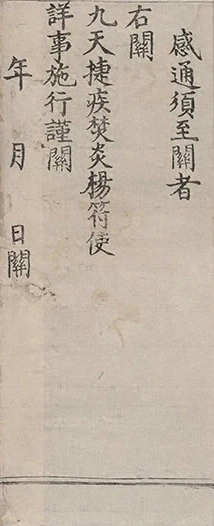 感通須至關者
右關
九天捷疾焚炎楊符使
詳事施行謹關
年　月　日關